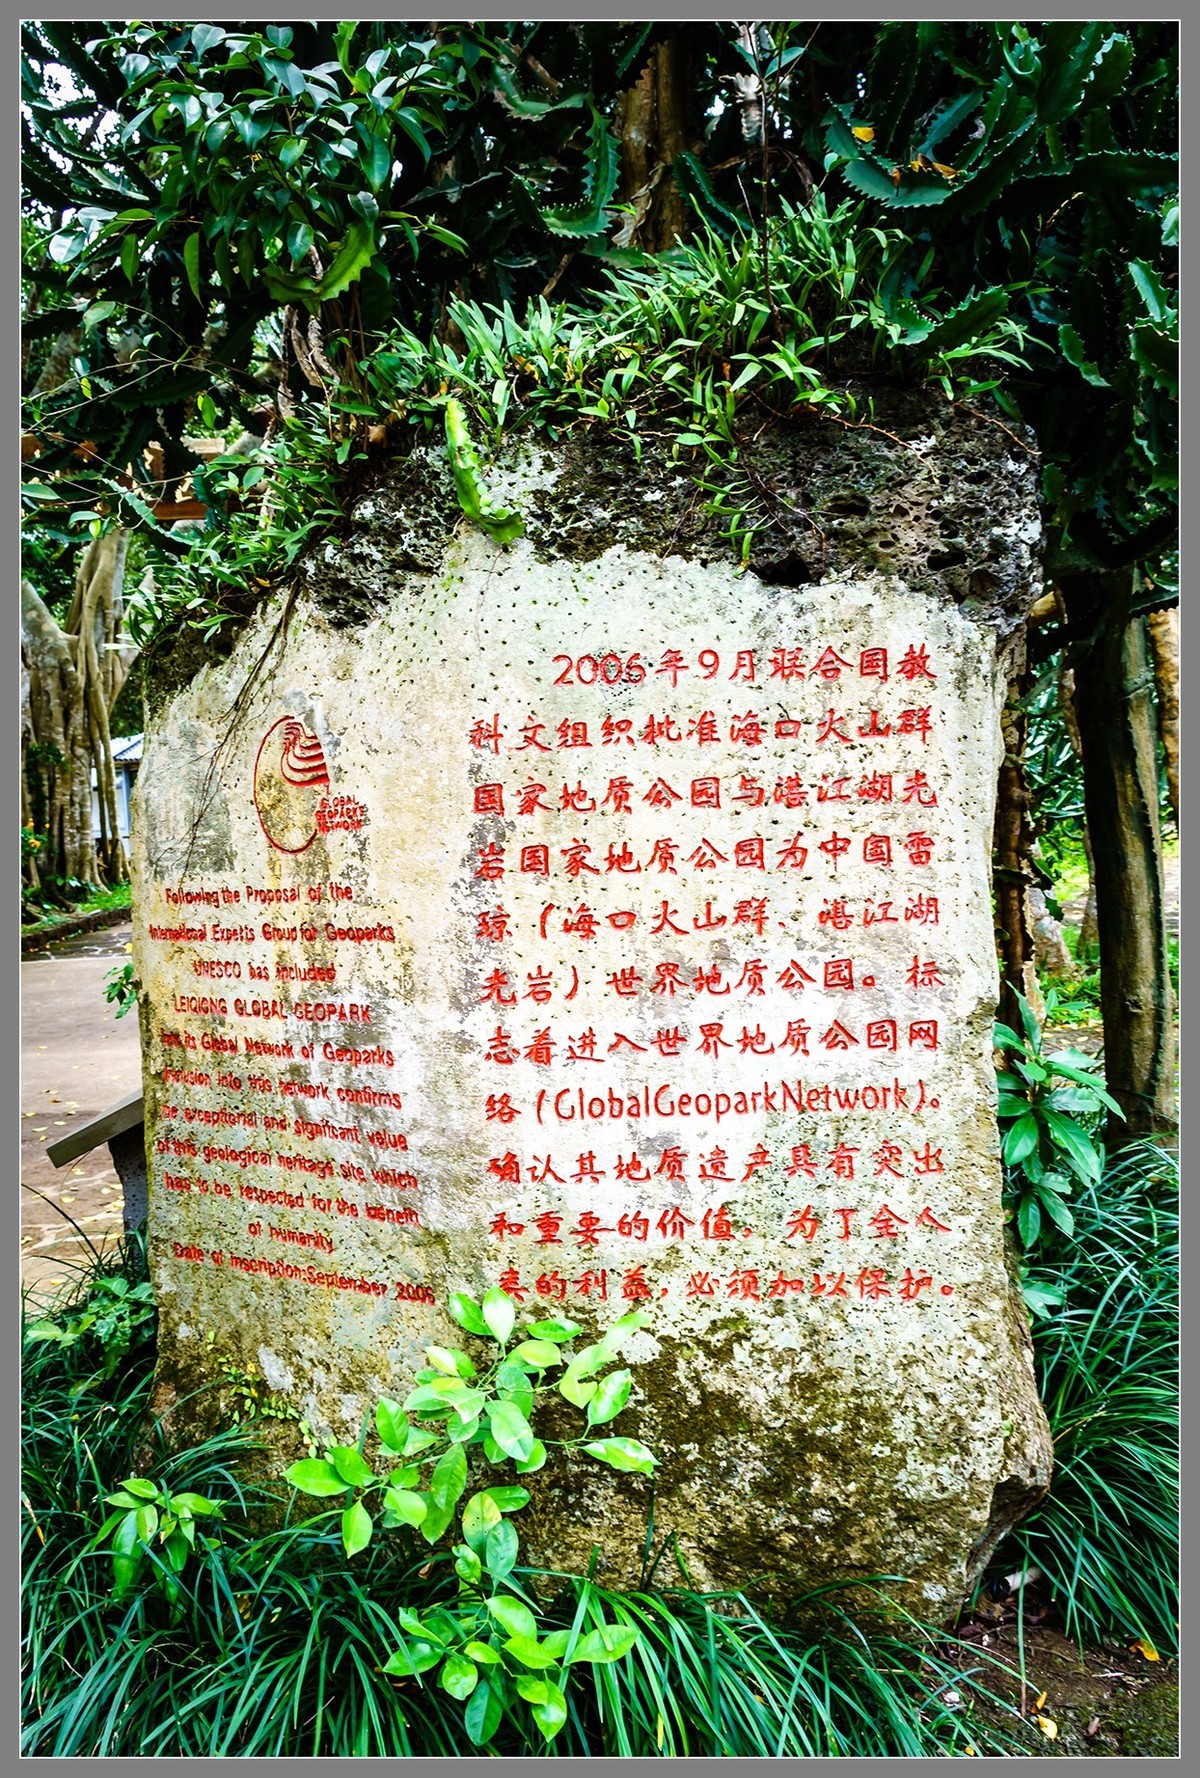 GLOBAL
GEOPARKS
NETWORK
Following the Proposal of the
International Experts Group for Geoparks
UNESCO has included
LEIQIONG GLOBAL GEOPARK
its Global Network of Geoparks
inclusion into this network confirms
the exceptional and significant value
of this geological heritage site which
has to be respected for the benefit
of humanity
Date of inscription:September 2006
2006年9月联合国教
科文组织批准海口火山群
国家地质公园与湛江湖光
岩国家地质公园为中国雷
琼(海口火山群、湛江湖
光岩)世界地质公园。标
志着进入世界地质公园网
络(GlobalGeoparkNetwork)。
确认其地质遗产具有突出
和重要的价值,为了全人
类的利益,必须加以保护。